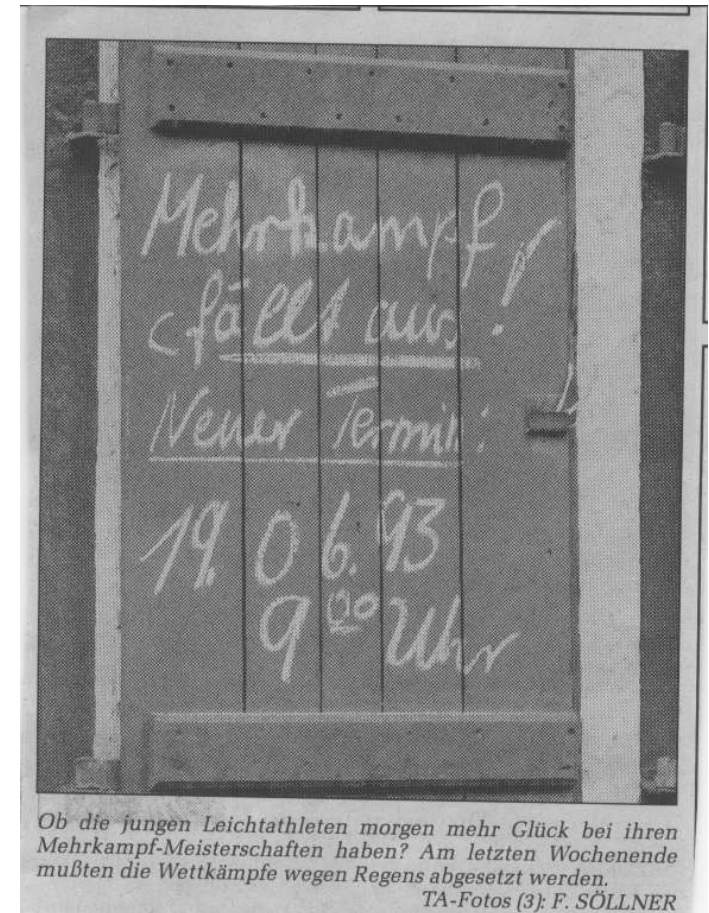 Mehrkampf
fällt aus!
Neuer Termin:
19. 06. 93
9 00 Uhr
Ob die jungen Leichtathleten morgen mehr Glück bei ihren
Mehrkampf-Meisterschaften haben? Am letzten Wochenende
mußten die Wettkämpfe wegen Regens abgesetzt werden.
TA-Fotos (3): F. SÖLLNER